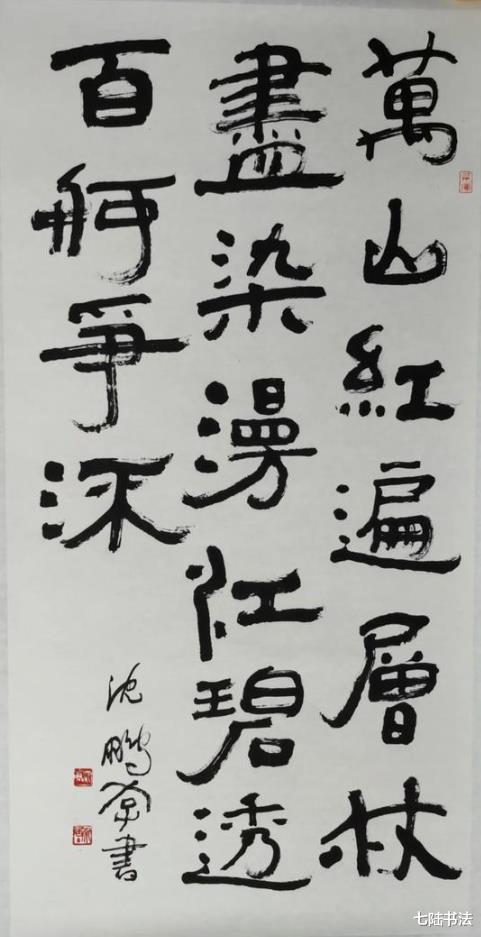 萬山紅遍層林
盡染漫江碧透
百舸爭流
沈鵬書
七陆书法